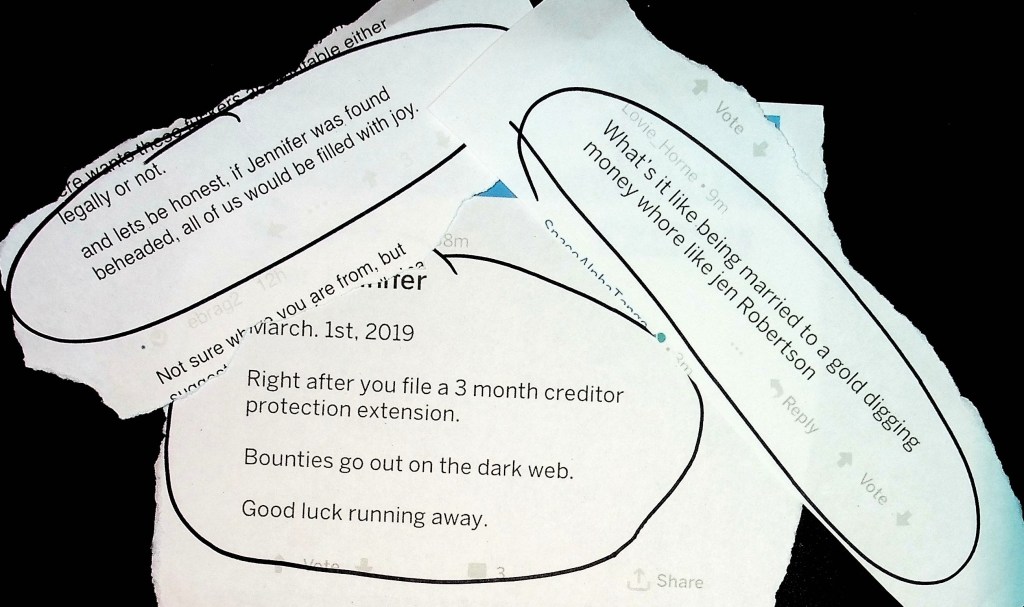 table either
legally or not.
and lets be honest, if Jennifer was found
beheaded, all of us would be filled with joy.
ebrag2 12h
Not sure where you are from, but
Vote
Lovie_Horne • 9m
What's it like being married to a gold digging
money whore like jen Robertson
Reply
Vote
SpaceAlphaTango
3m
8m
March. 1st, 2019
Right after you file a 3 month creditor
protection extension.
Bounties go out on the dark web.
Good luck running away.
Vote
3
Share